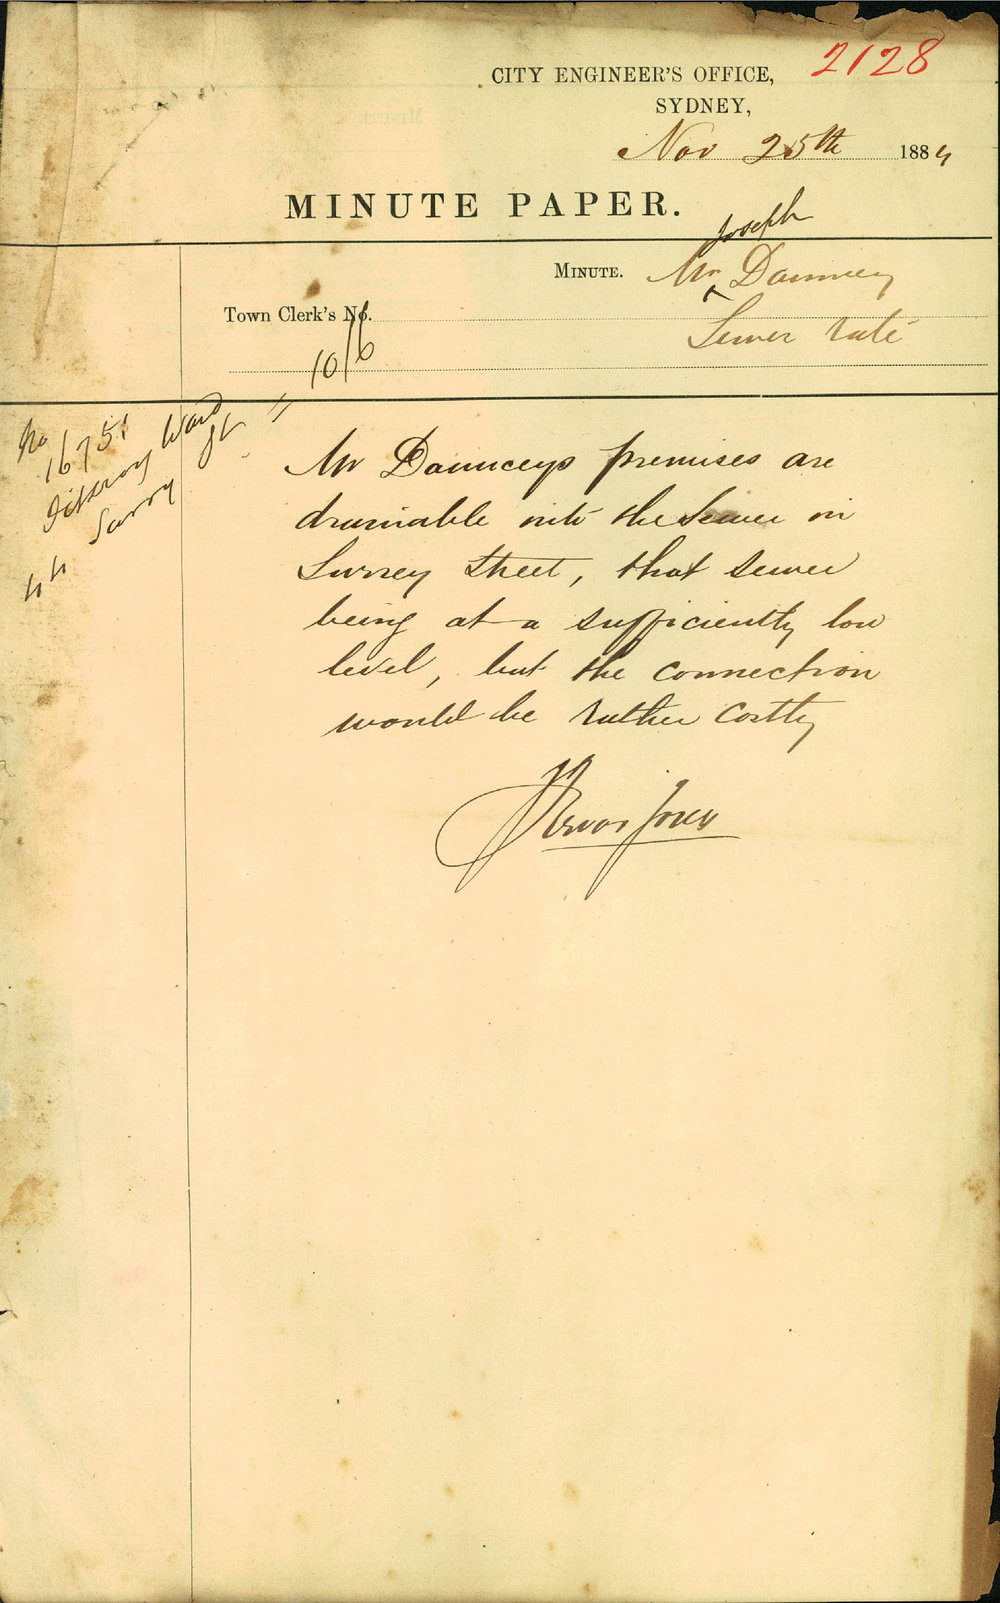 2128
CITY ENGINEER'S OFFICE,
SYDNEY,
Nov 25th 1884
MINUTE PAPER.
Joseph
MINUTE. Mr Dauncey
Town Clerk's No.
Sewer rate
10/6
No 16751
Fitzroy Ward
44 Surry St
Mr Daunceys premises are
drainable into the Sewer in
Surrey Street, that sewer
being at a sufficiently low
level, but the connection
would be rather costly
Trevor Jones